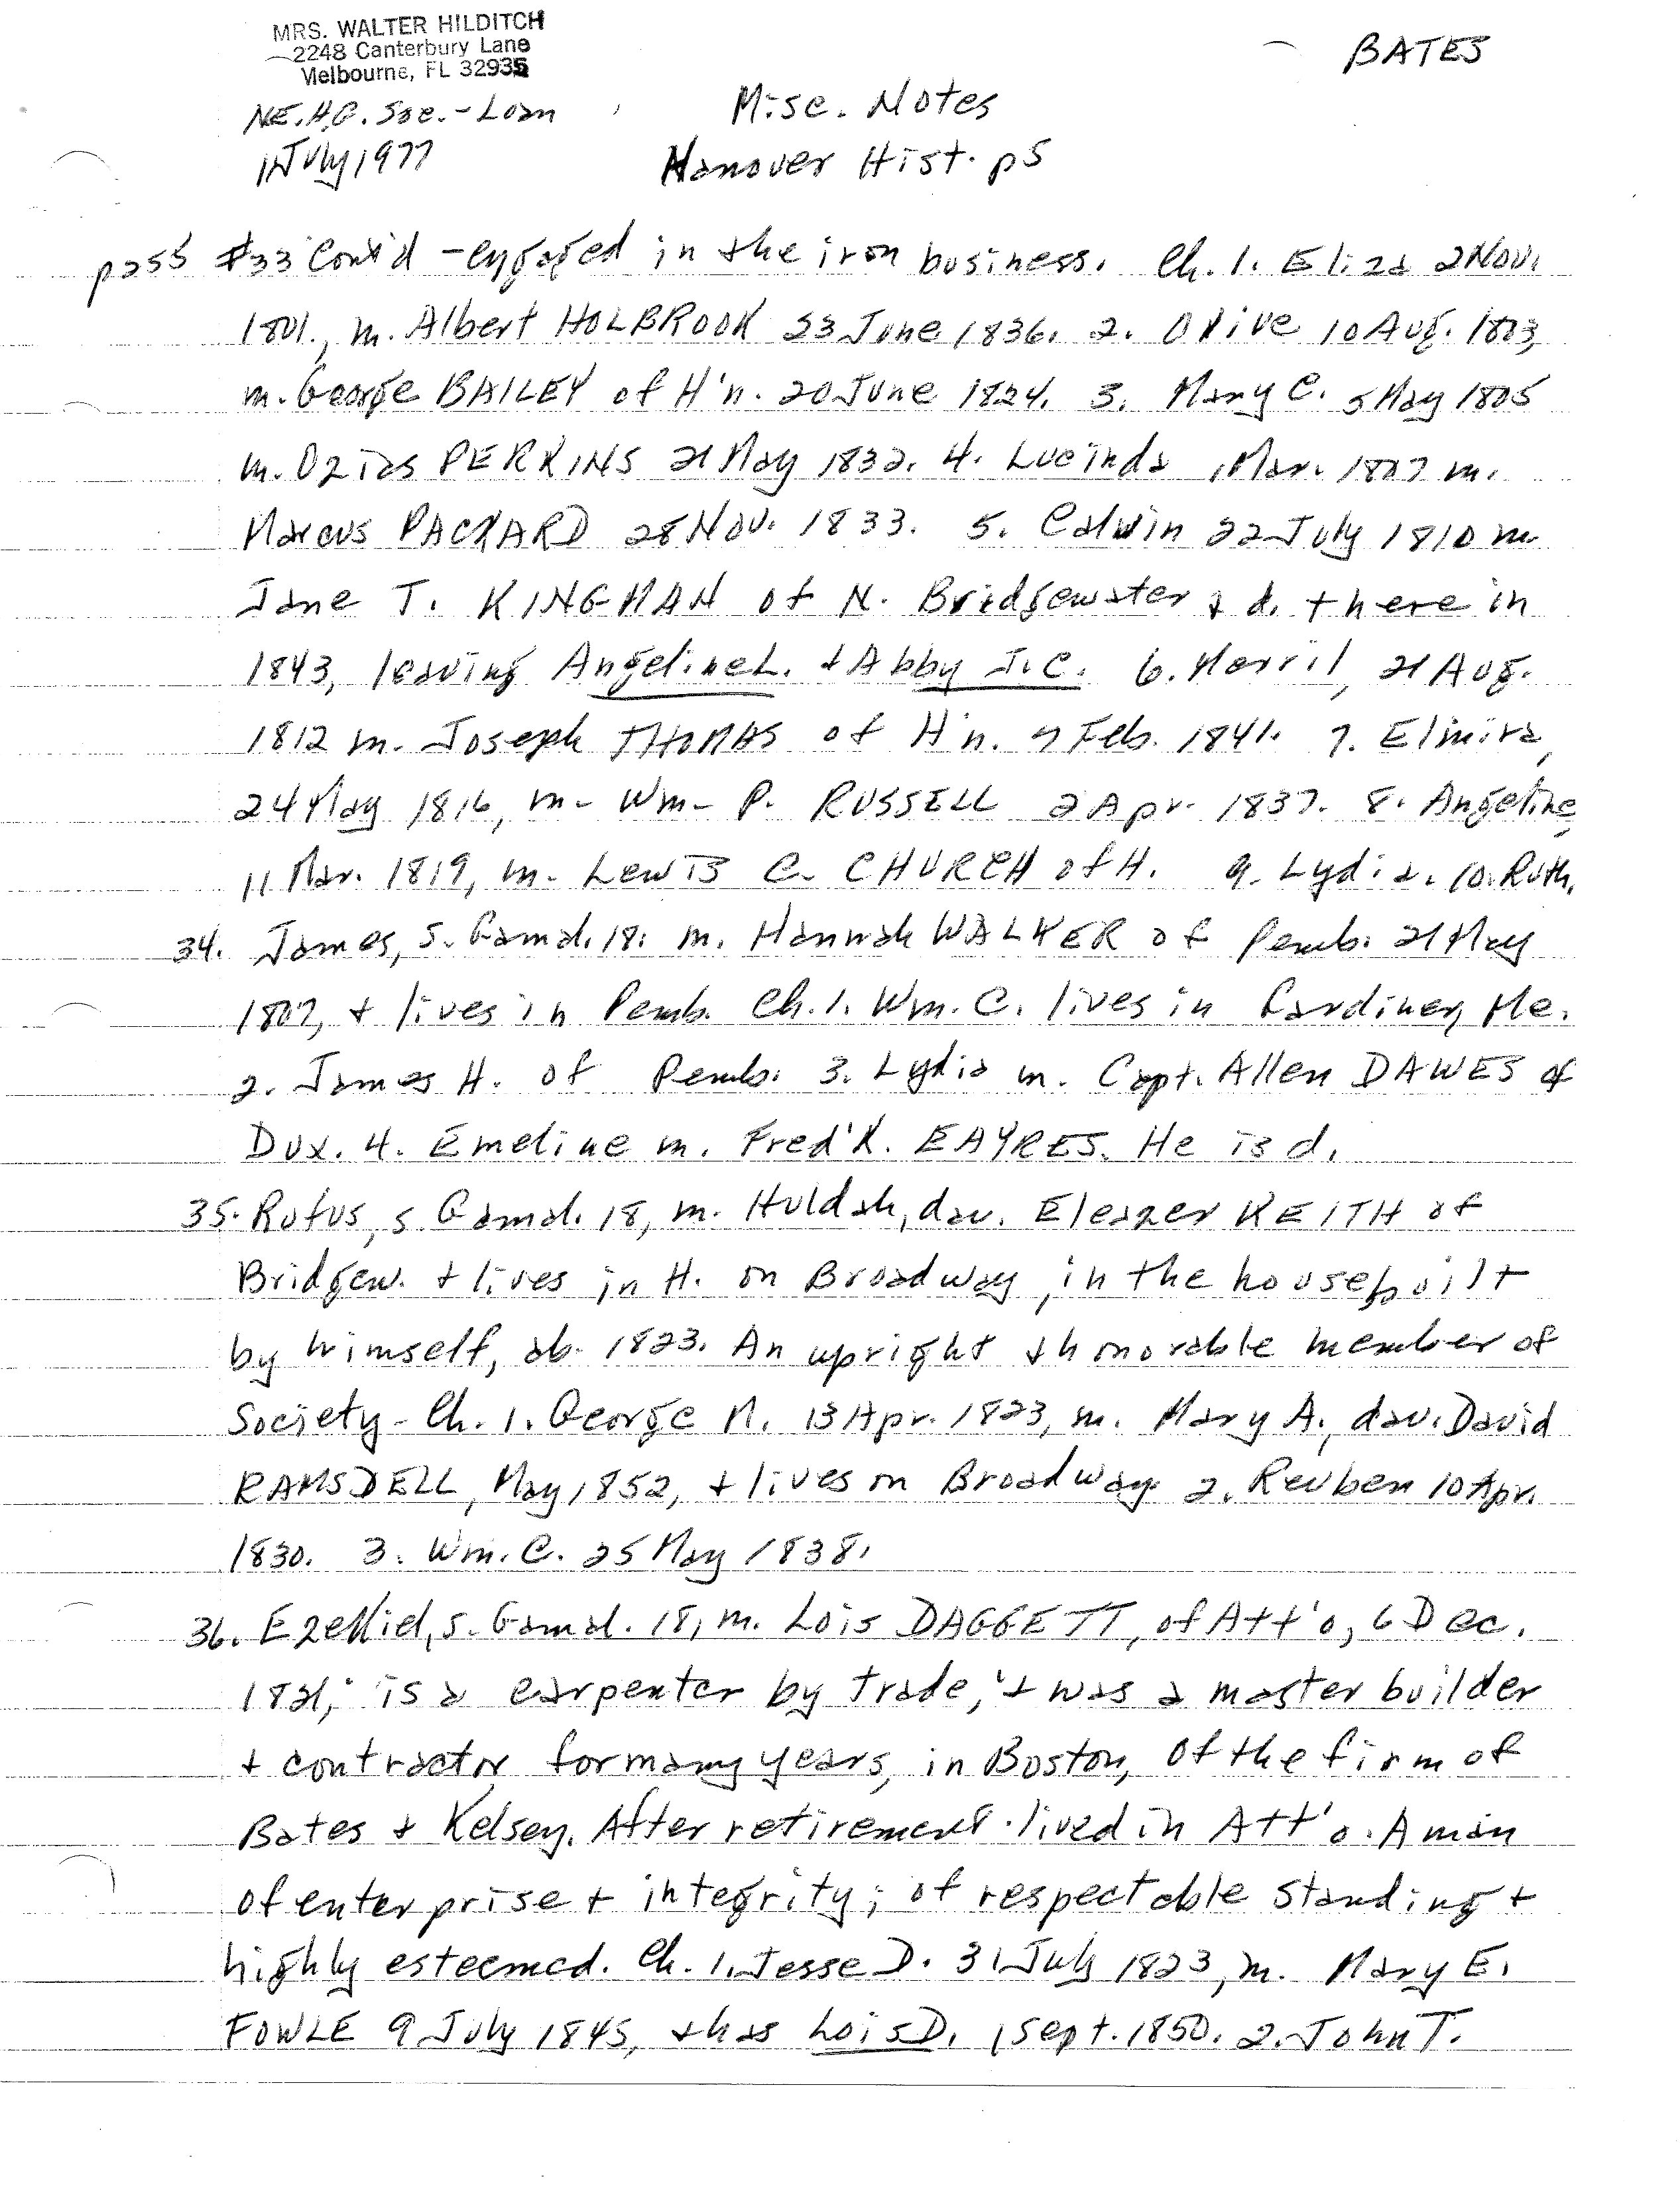 MRS. WALTER HILDITCH
2248 Canterbury Lane
Melbourne, FL 32935
BATES
N.E.H.G. Soc. - Loan
Misc. Notes
1 July 1977
Hanover Hist. p5
#33 Cont'd - engaged in the iron business. Ch. 1. Eliza 2 Nov.
1801., m. Albert HOLBROOK 23 June 1836. 2. Olive 10 Aug. 1803,
m. George BAILEY of H'n. 20 June 1824. 3. Mary C. 5 May 1805
m. Ozias PERKINS 21 May 1832. 4. Lucinda 1 Mar. 1807 m.
Marcus PACKARD 28 Nov. 1833. 5. Calvin 22 July 1810 m.
Jane T. KINGMAN of N. Bridgewater & d. there in
1843, leaving Angeline L. & Abby J.C. 6. Merril, 21 Aug.
1812 m. Joseph THOMAS of H'n. 7 Feb. 1841. 7. Elmira,
24 May 1816, m. Wm. P. RUSSELL 2 Apr. 1837. 8. Angeline,
11 Mar. 1819, m. Lewis C. CHURCH of H. 9. Lydia. 10. Ruth.
34. James, s. Gamal. 18. m. Hannah WALKER of Pemb. 21 May
1807, & lives in Pemb. Ch. 1. Wm. C. lives in Gardiner, Me.
2. James H. of Pemb. 3. Lydia m. Capt. Allen DAWES of
Dux. 4. Emeline m. Fred'k. EAYRES. He is d.
35. Rufus, s. Gamal. 18, m. Huldah, dau. Eleazer KEITH of
Bridgew. & lives in H. on Broadway, in the house built
by himself, ab. 1823. An upright & honorable member of
Society - Ch. 1. George M. 13 Apr. 1823, m. Mary A., dau. David
RAMSDELL, May 1852, & lives on Broadway. 2. Reuben 10 Apr.
1830. 3. Wm. C. 25 May 1838.
36. Ezekiel, s. Gamal. 18, m. Lois DAGGETT, of Att'o, 6 Dec.
1821; is a carpenter by trade, & was a master builder
& contractor, for many years, in Boston, of the firm of
Bates & Kelsey. After retirement lived in Att'o. A man
of enterprise & integrity; of respectable standing &
highly esteemed. Ch. 1. Jesse D. 31 July 1823, m. Mary E.
FOWLE 9 July 1845, & has Lois D. 1 Sept. 1850. 2. John T.